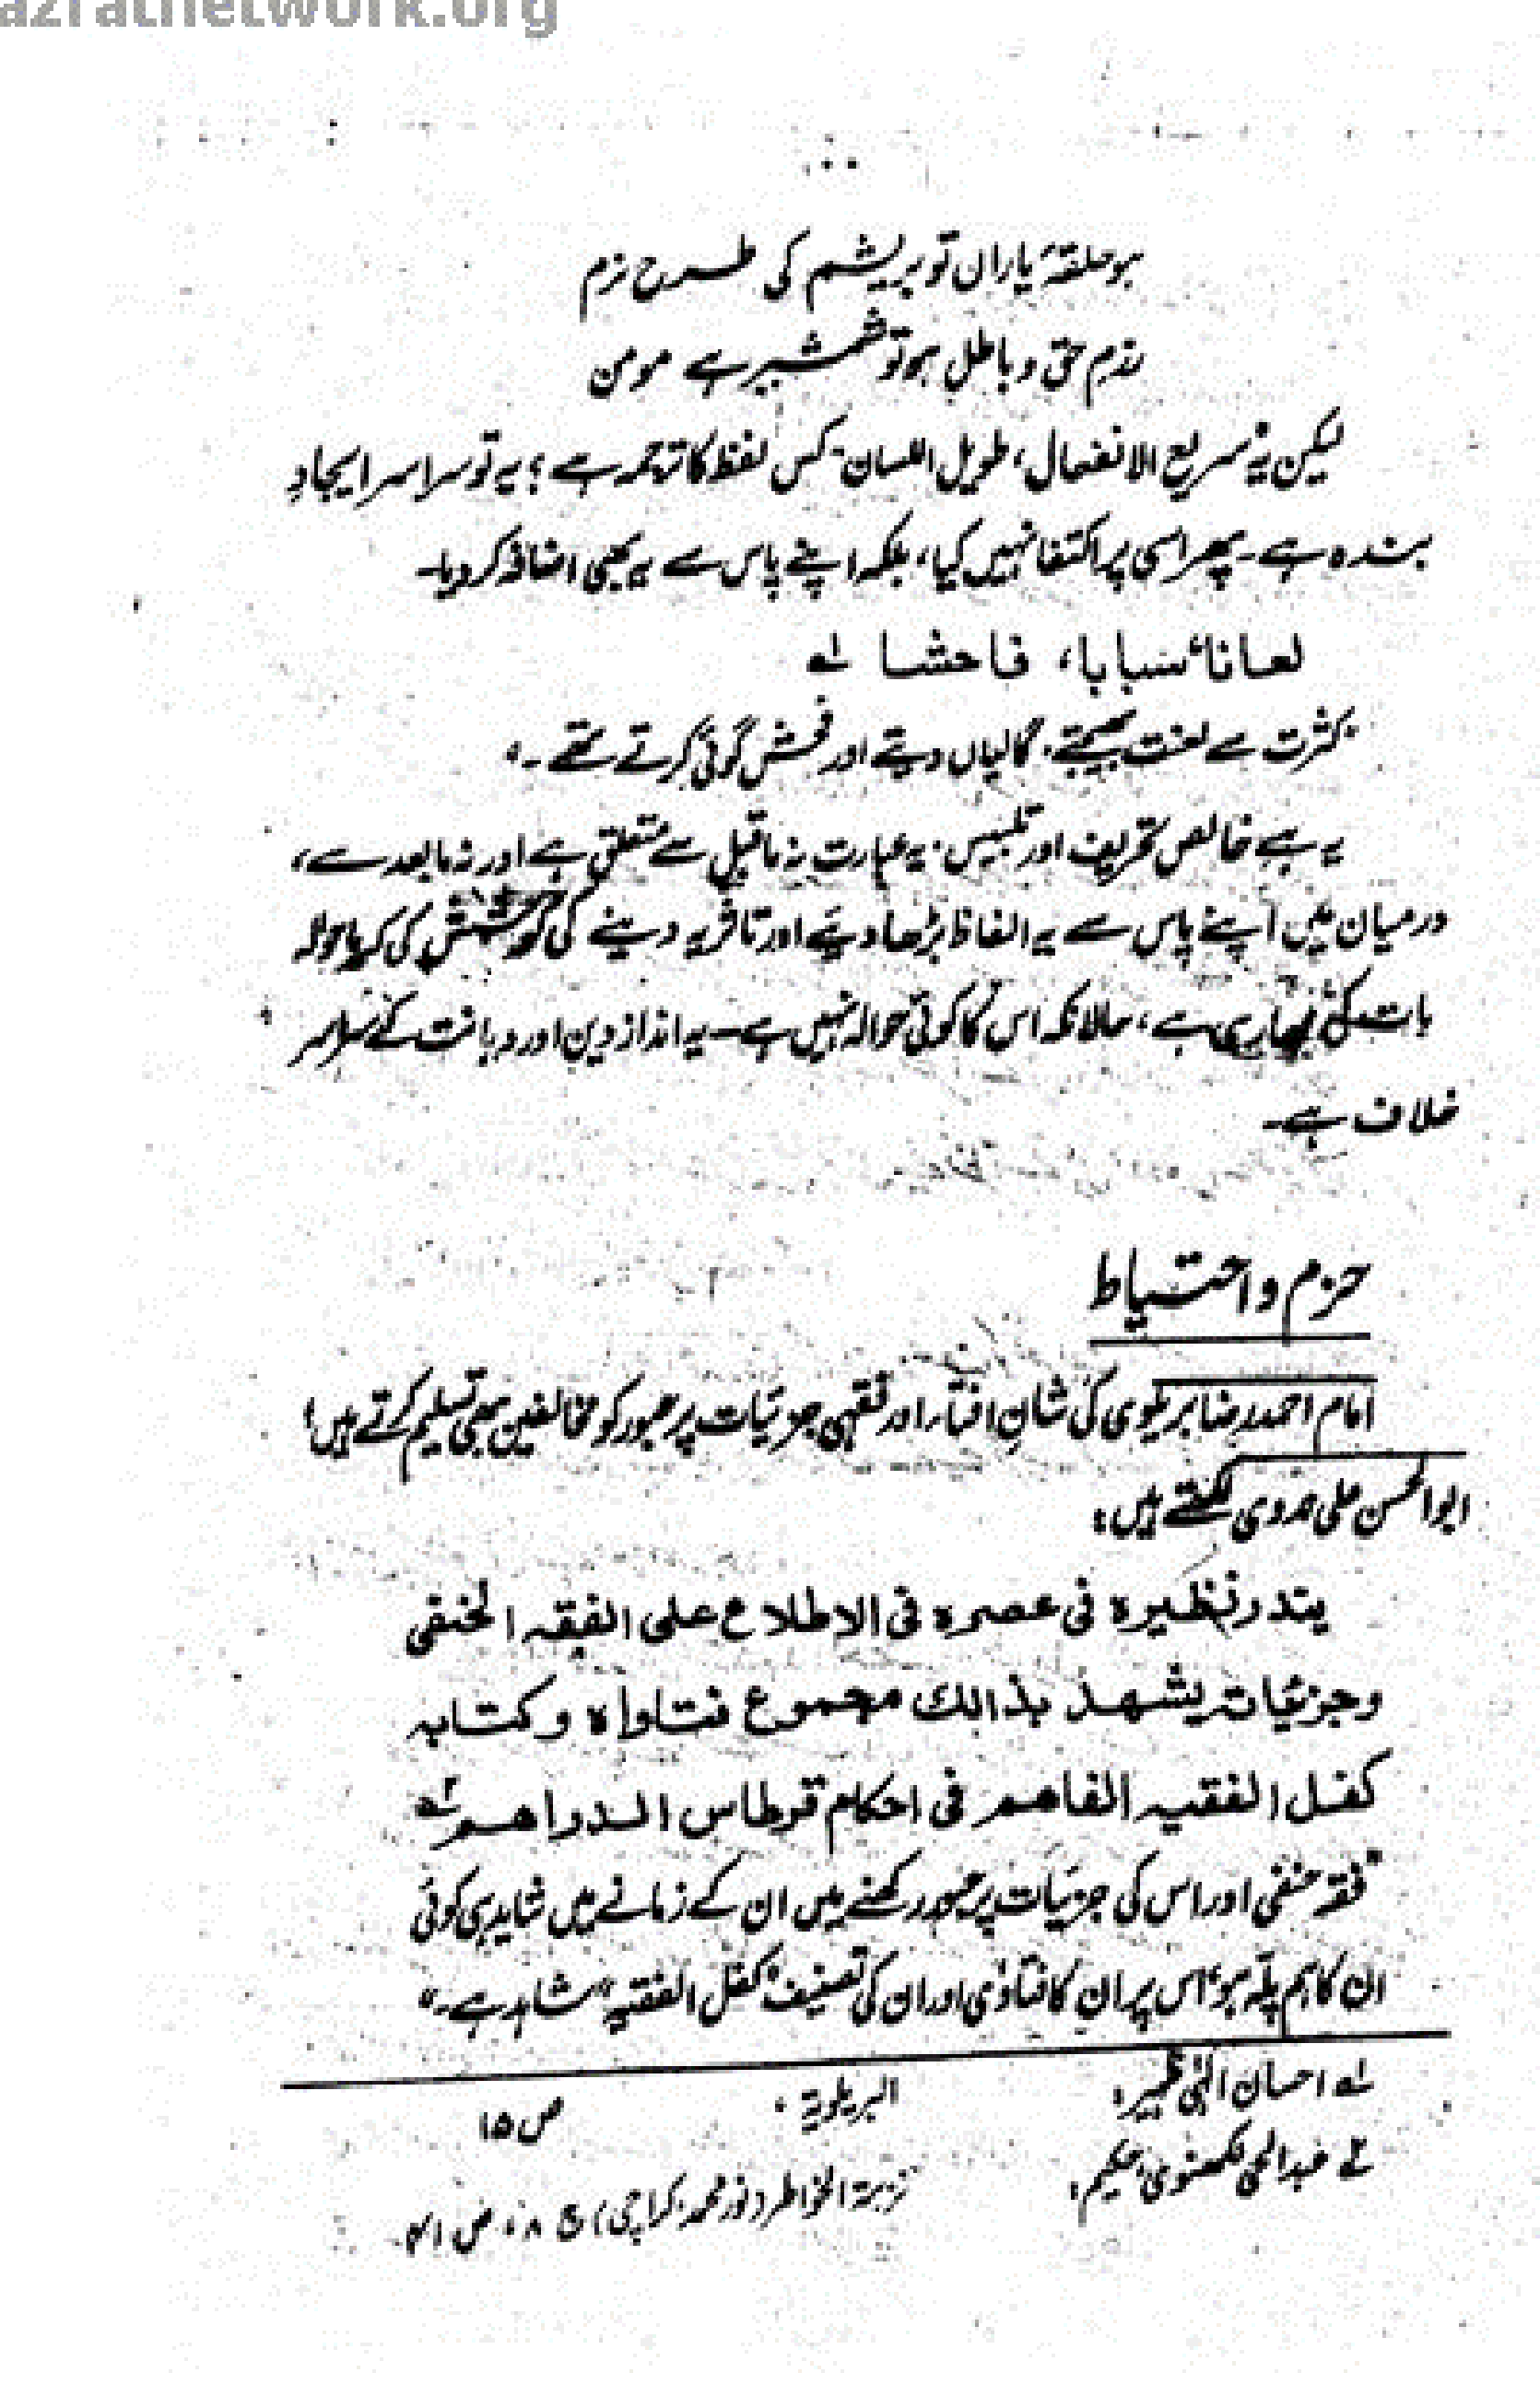 azratnetwork.org
ہو حلقۂ یاراں تو بریشم کی طرح نرم
رزم حق و باطل ہو تو شمشیر ہے مومن
لیکن یہ سریع الانفعال، طویل اللسان کس لفظ کا ترجمہ ہے؟ یہ تو سراسر ایجادِ
بندہ ہے۔ پھر اسی پر اکتفا نہیں کیا، بلکہ اپنے پاس سے یہ بھی اضافہ کر دیا۔
لعانا، سبابا، فاحشا لہ
"کثرت سے لعنت بھیجتے، گالیاں دیتے اور فحش گوئی کرتے تھے۔"
یہ ہے خالص تحریف اور تلبیس۔ یہ عبارت نہ ماقبل سے متعلق ہے اور نہ مابعد سے،
درمیان میں اپنے پاس سے یہ الفاظ بڑھا دیئے اور تاثر یہ دینے کی کوشش کی کہ باحوالہ
بات کی جا رہی ہے، حالانکہ اس کا کوئی حوالہ نہیں ہے۔ یہ انداز دین اور دیانت کے سراسر
خلاف ہے۔
حزم واحتیاط
امام احمد رضا بریلوی کی شانِ افتار اور فقہی جزئیات پر عبور کو مخالفین بھی تسلیم کرتے ہیں؛
ابوالحسن علی ندوی لکھتے ہیں:
یندر نظیرہ فی عصرہ فی الاطلاع علی الفقہ الحنفی
وجزئیاتہ یشھد بذالک مجموع فتاواہ وکتابہ
کفل الفقیہ الفاھم فی احکام قرطاس الدراھم ۲ہ
"فقہ حنفی اور اس کی جزئیات پر عبور رکھنے میں ان کے زمانے میں شاید ہی کوئی
ان کا ہم پلّہ ہو، اس پر ان کا فتاویٰ اور ان کی تصنیف "کفل الفقیہ" شاہد ہے۔"
لہ احسان الٰہی ظہیر: البریلویۃ، ص ۱۵
۲ عبدالحی لکھنوی، حکیم: نزہۃ الخواطر (نور محمد، کراچی) ج ۸، ص ۴۱